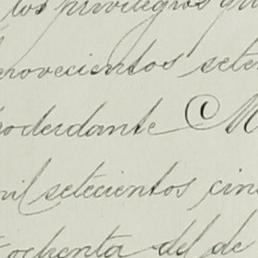 los privilegios
novecientos seten
poderdante M
mil setecientos cin
ochenta del de